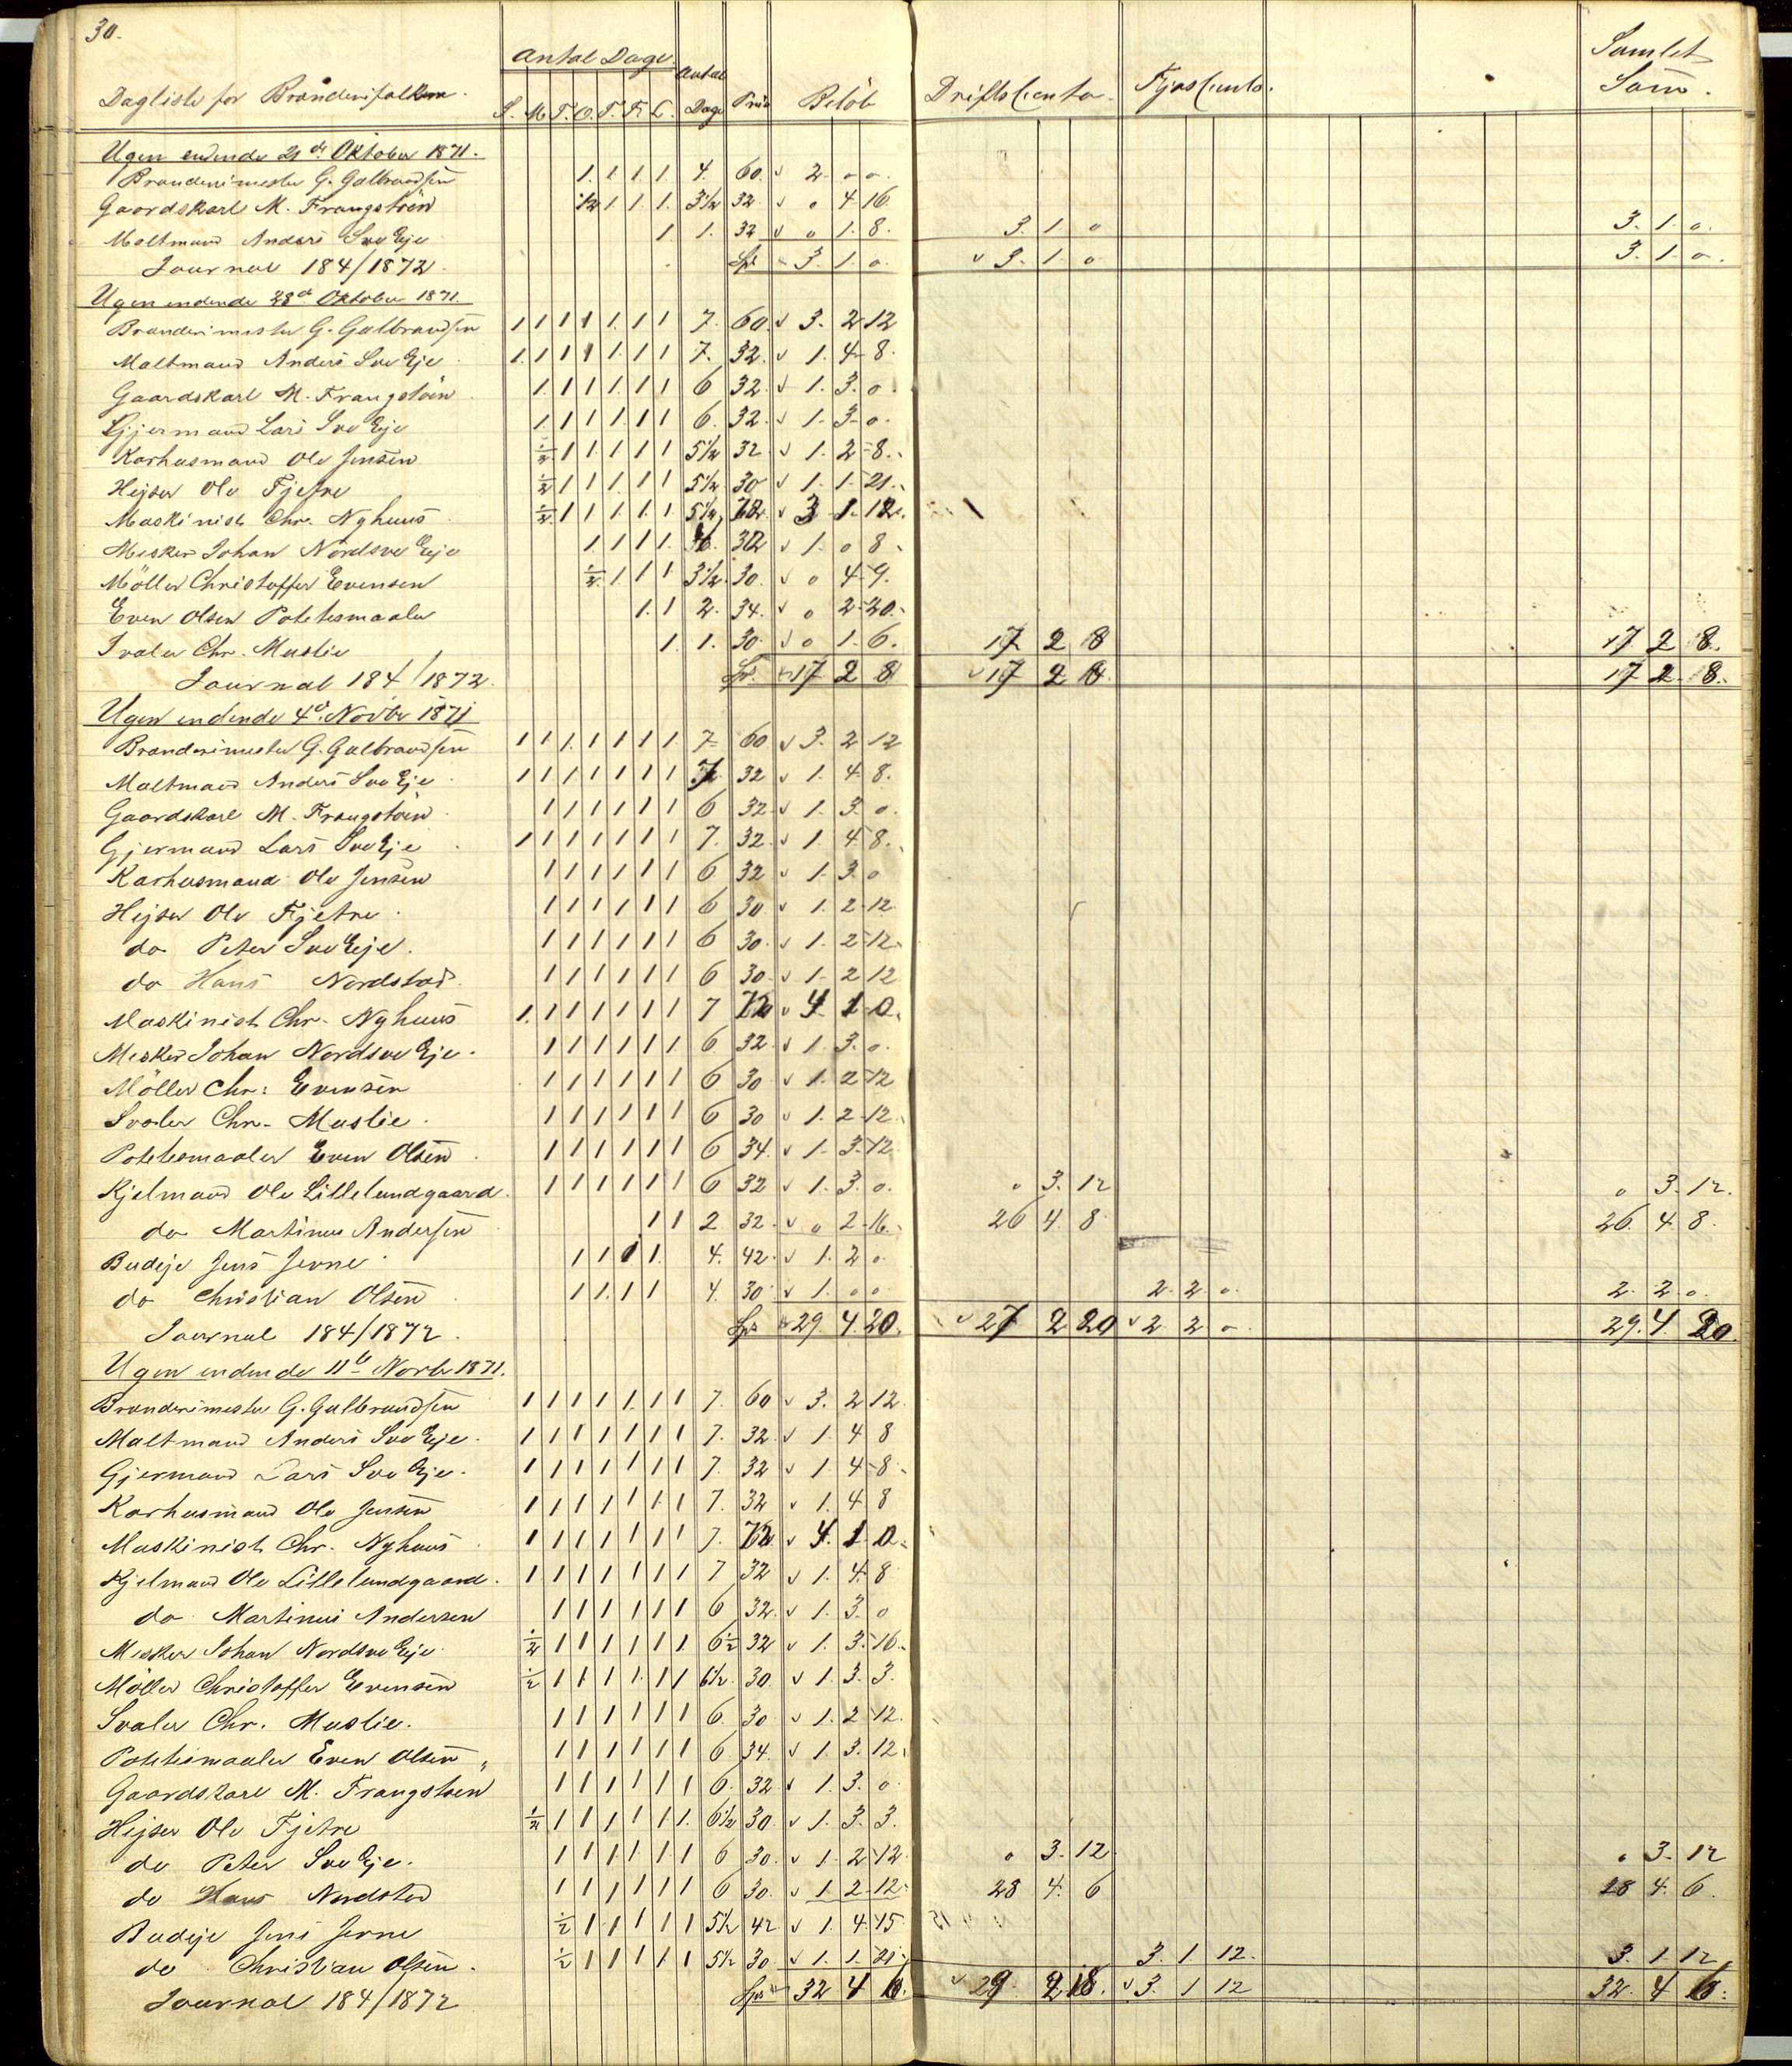 30.
Dagliste for Brænderifolkene. Antal Dage Antal Dage Priis Beløb DriftsConto. FjøsConto. Samlet Sum.
S. M. T. O. T. F. L.
Ugen endende 21de Oktober 1871.
Brænderimester G. Gulbrandsen 1. 1 1. 1. 4. 60. v 2 - o o.
Gaardskarl M. Frangstøen 1/2 1 1. 1. 3 1/2 32 v o 4 16.
Maltmand Anders Sve Eje 1 1. 32 v o 1. 8. 3. 1. o 3. 1. o.
Journal 184/1872. Spd 3. 1. o. v 3. 1. o 3. 1. o.
Ugen endende 28de Oktober 1871
Brænderimester G. Gulbrandsen 1 1 1 1 1. 1 1 7. 60 v 3. 2 12
Maltmand Anders Sve Eje 1. 1 1 1 1. 1 1 7. 32. v 1. 4 8.
Gaardskarl M. Frangstøen 1. 1 1 1. 1 1 6 32. v 1. 3. o.
Gjærmand Lars Sve Eje 1. 1 1 1 1 1 6. 32. v 1. 3. o.
Karhusmand Ole Jensen 1/2 1 1. 1 1 1 5 1/2 32 v 1. 2 8.
Hejser Ole Fjetre 1/2 1 1 1. 1 1 5 1/2 30 v 1. 1 21.
Maskinist Chr. Nyhuus 1/2 1 1 1. 1. 1 5 1/2 72. v 3 1. 12.
Mesker Johan Nordsve Eje 1. 1 1 1. 4. 32 v 1. o 8
Møller Christoffer Evensen 1/2 1 1 1 3 1/2 30. v o 4 9.
Even Olsen Potetesmaaler 1. 1 2. 34. v o 2 20.
Svaler Chr. Muslie 1. 1. 30. v o 1. 6. 17 2 8 17 2 8.
Journal 184/1872. Spd 17 2 8 v 17 2 8. 17 2 8.
Ugen endende 4de Novbr 1871
Brænderimester G. Gulbrandsen 1 1 1. 1 1 1 1 7 60 v 3. 2 12
Maltmand Anders Sve Eje 1 1 1 1 1 1 1 7. 32 v 1. 4. 8.
Gaardskarl M. Frangstøen 1 1 1 1 1 1 6 32. v 1. 3. o.
Gjærmand Lars Sve Eje 1 1 1 1 1 1 1 7. 32. v 1. 4 8.
Karhusmand Ole Jensen 1 1 1 1 1 1 6 32 v 1. 3. o
Hejser Ole Fjetre 1 1 1 1 1 1 6 30 v 1. 2 12
do Peter Sve Eje. 1 1 1 1 1 1 6 30. v 1. 2 12.
do Hans Nordstad 1 1 1 1 1 1 6 30. v 1. 2 12
Maskinist Chr. Nyhuus 1. 1 1 1 1 1 1 7 72 v 4 1 0.
Mesker Johan Nordsve Eje. 1 1 1 1 1 1 6 32 v 1. 3. o.
Møller Chr: Evensen 1 1 1 1 1 1 6 30 v 1. 2 12
Svaler Chr. Muslie. 1 1 1 1 1 1 6 30 v 1. 2 12.
Potetesmaaler Even Olsen 1 1 1 1 1 1 6 34. v 1. 3. 12.
Kjelmand Ole Lillelundgaard. 1 1 1 1 1 1 6 32 v 1. 3. o. o 3. 12 o 3. 12.
do Martinus Andersen 1 1 2 32. v o 2 16. 26 4 8 26. 4 8.
Budeje Jens Jevne 1 1 1 1. 4. 42. v 1. 2 o
do Christian Olsen 1 1. 1 1 4. 30. v 1. o o 2. 2 o. 2. 2 o
Journal 184/1872. Spd 29. 4. 20. v 27 2 20 v 2 2 o 29. 4. 20.
Ugen endende 11te Novbr 1871.
Brænderimester G. Gulbrandsen 1 1 1 1 1. 1 1 7. 60 v 3. 2 12.
Maltmand Anders Sve Eje. 1 1 1 1 1 1 1 7. 32. v 1. 4 8
Gjærmand Lars Sve Eje. 1 1 1 1 1 1 1 7. 32 v 1. 4 8.
Karhusmand Ole Jensen 1 1 1 1 1 1 1 7. 32 v 1. 4 8
Maskinist Chr. Nyhuus 1 1 1 1 1 1 1 7. 72. v 4. 1 0.
Kjelmand Ole Lillelundgaard. 1 1 1 1 1 1 1 7 32 v 1. 4. 8
do Martinus Andersen 1 1 1 1 1 1 6 32. v 1. 3. o
Mesker Johan Nordsve Eje 1/2 1 1 1 1 1 1 6 1/2 32 v 1. 3. 16.
Møller Christoffer Evensen 1/2 1 1 1 1 1 1 6 1/2 30. v 1. 3. 3.
Svaler Chr. Muslie. 1 1 1 1 1 1 6. 30 v 1. 2 12.
Potetesmaaler Even Olsen 1 1 1 1 1 1 6 34. v 1. 3. 12.
Gaardskarl M. Frangstøen 1 1 1 1 1 1 6. 32. v 1. 3. o
Hejser Ole Fjetre 1/2 1 1 1 1 1 1. 6 1/2 30. v 1. 3. 3.
do Peter Sve Eje. 1 1 1 1. 1 1 6 30. v 1. 2 12. o 3. 12. o 3. 12
do Hans Nordstad 1 1 1 1 1 1 6 30. v 1. 2 12. 28 4. 6 28 4. 6.
Budeje Jens Jevne 1/2 1 1 1 1 1 5 1/2 42 v 1. 4. 15
do Christian Olsen. 1/2 1 1 1 1. 1 5 1/2 30. v 1. 1. 21. 3. 1. 12. 3. 1. 12
Journal 184/1872 Spd 32 4 6. v 29. 2 18. v 3. 1 12 32. 4 6.